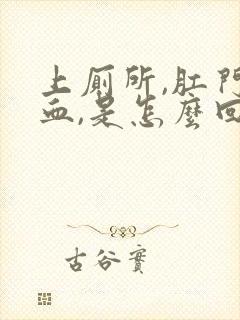 上厕所,肛門
血,是怎麼回
古谷實